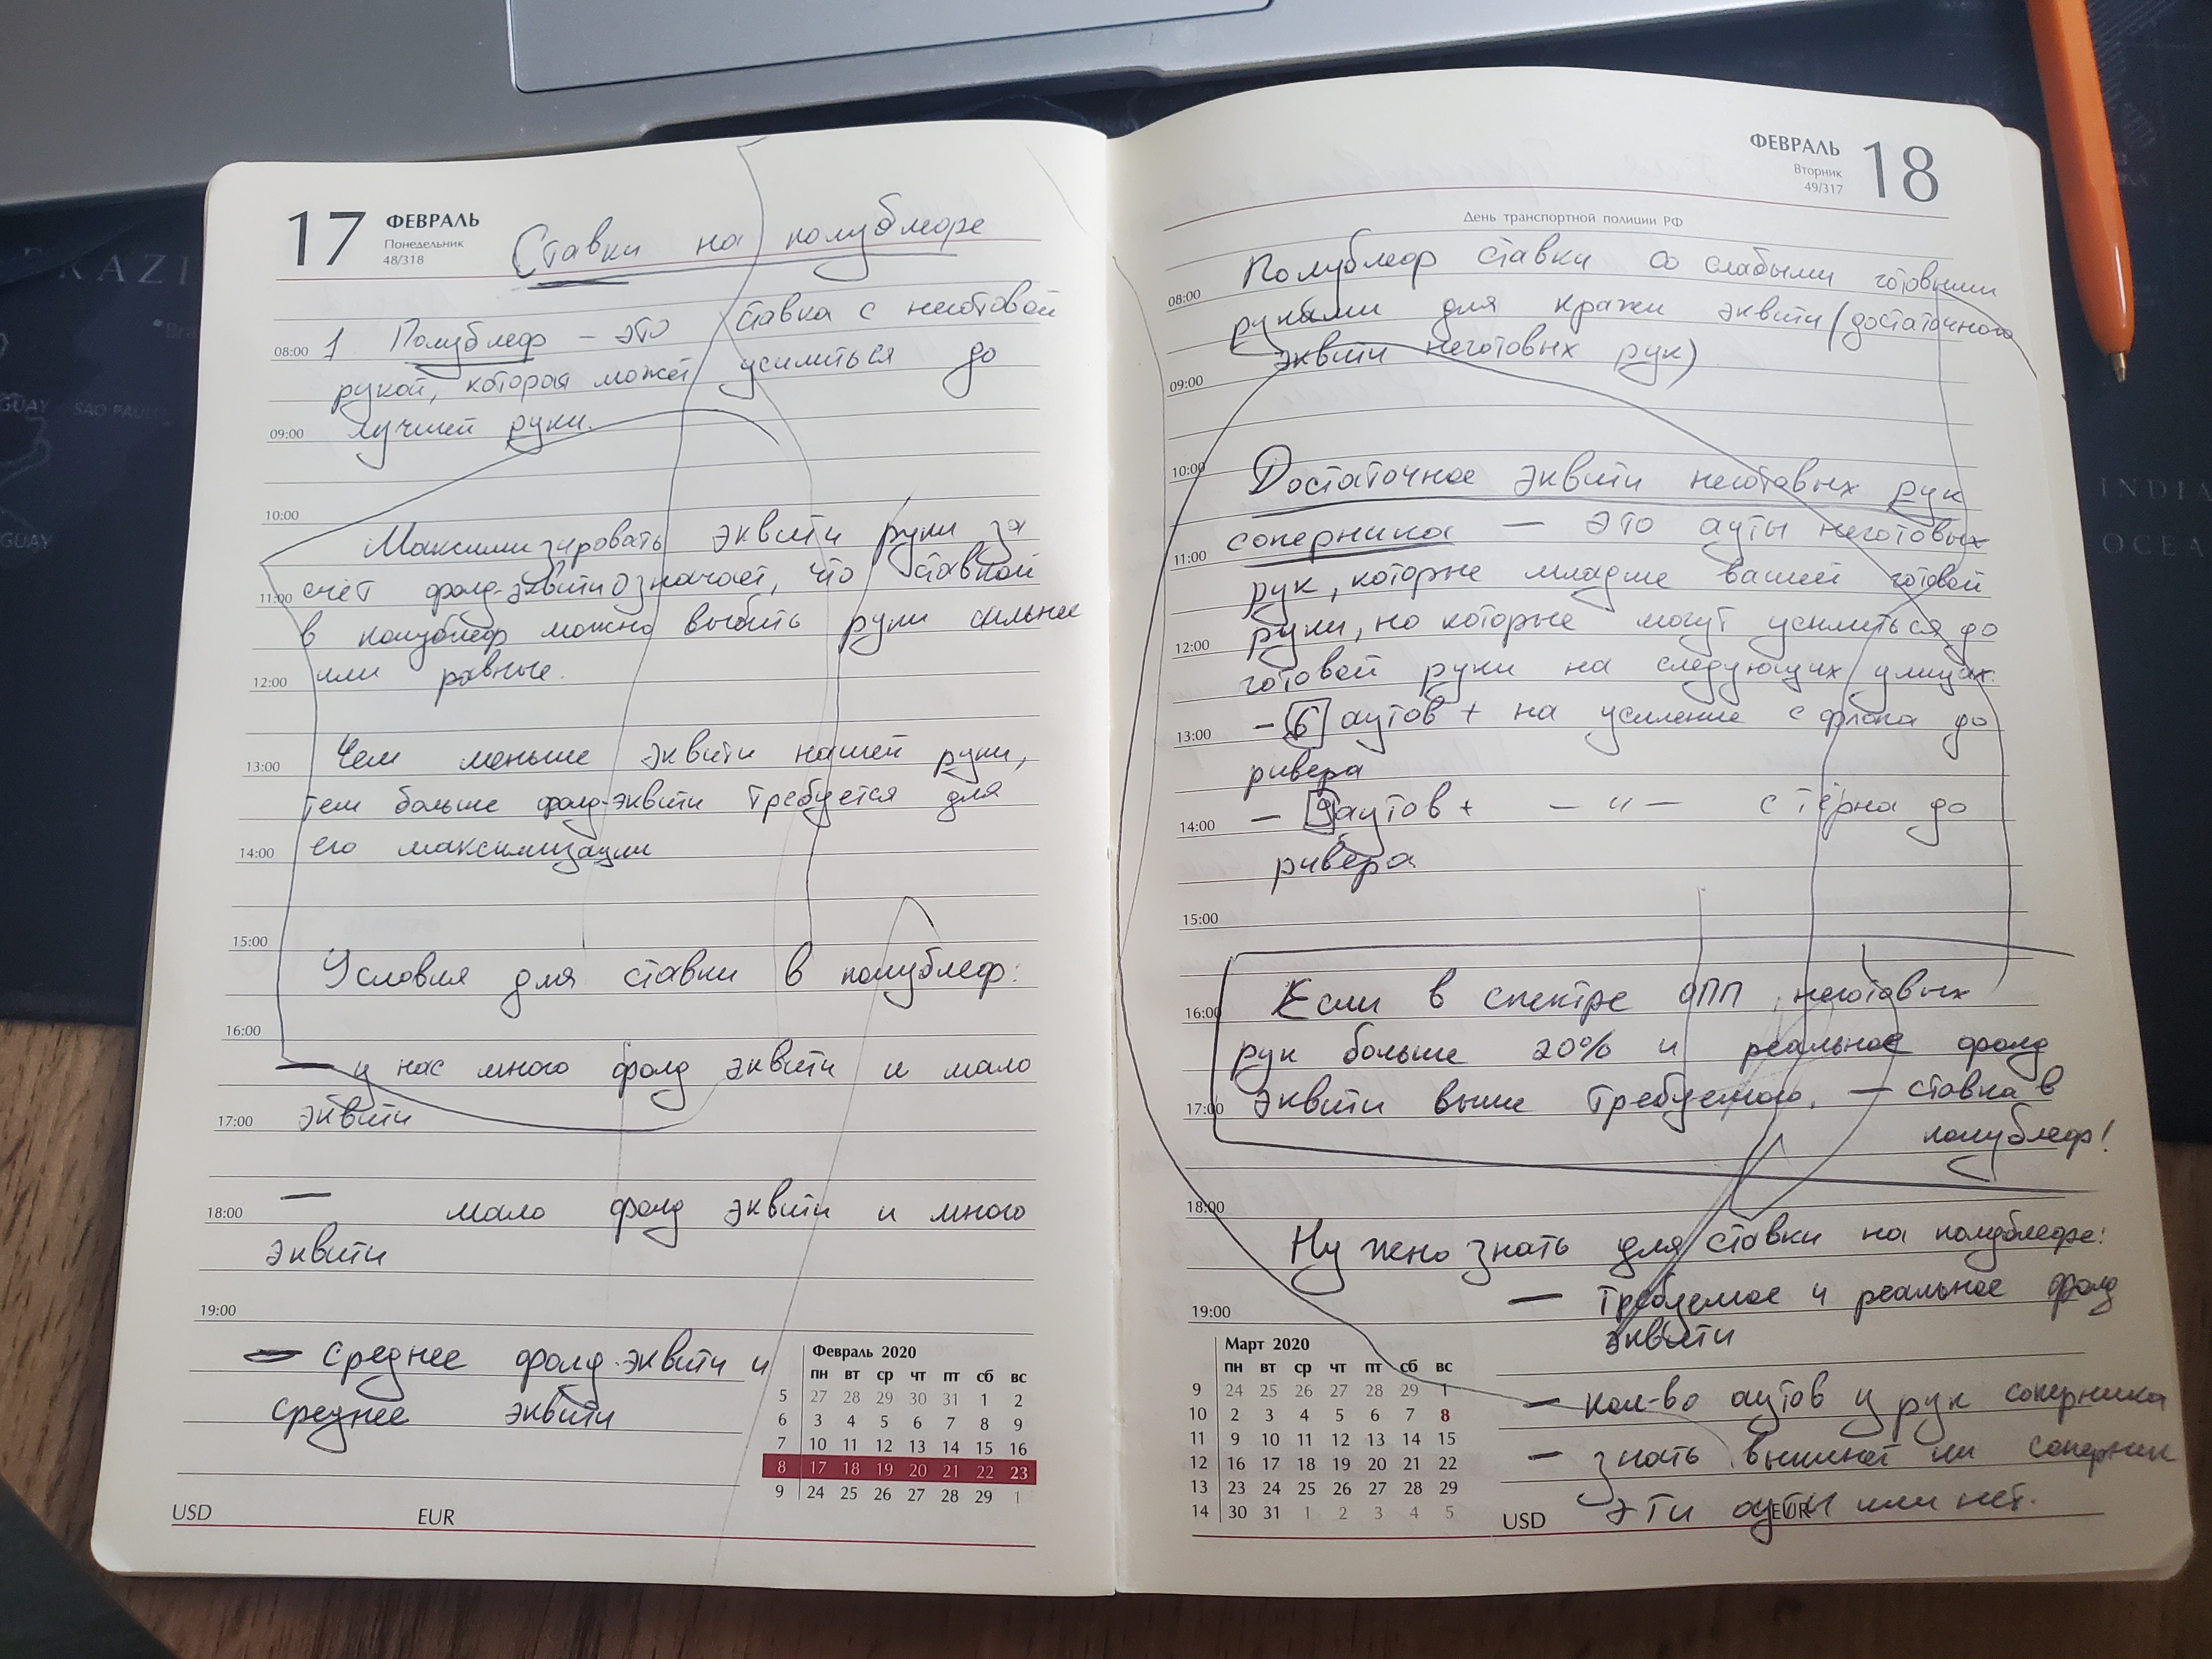 17 ФЕВРАЛЬ
Понедельник
48/318
Ставки на полублефе
08:00 1 Полублеф – это ставка с неготовой
рукой, которая может усилиться до
09:00 лучшей руки.
10:00
Максимизировать эквити руки за
11:00 счёт фолд-эквити означает, что ставкой
в полублеф можно выбить руки сильнее
12:00 или равные.
13:00 Чем меньше эквити нашей руки,
тем больше фолд-эквити требуется для
14:00 его максимизации
15:00
Условия для ставки в полублеф:
16:00
— у нас много фолд эквити и мало
17:00 эквити
18:00 — мало фолд эквити и много
эквити
19:00
— Среднее фолд-эквити и
среднее эквити
Февраль 2020
пн вт ср чт пт сб вс
5 27 28 29 30 31 1 2
6 3 4 5 6 7 8 9
7 10 11 12 13 14 15 16
8 17 18 19 20 21 22 23
9 24 25 26 27 28 29 1
USD EUR
ФЕВРАЛЬ 18
Вторник
49/317
День транспортной полиции РФ
08:00 Полублеф ставки со слабыми готовыми
руками для кражи эквити (достаточного
09:00 эквити неготовых рук)
10:00 Достаточное эквити неготовых рук
11:00 соперника — это ауты неготовых
рук, которые младше вашей готовой
12:00 руки, но которые могут усилиться до
готовой руки на следующих улицах.
13:00 – 6 аутов + на усиление с флопа до
ривера
14:00 – 9 аутов + — " — с тёрна до
ривера
15:00
16:00 Если в спектре ОПП неготовых
рук больше 20% и реальное фолд
17:00 эквити выше требуемого, — ставка в
полублеф!
18:00
Нужно знать для ставки на полублефе:
19:00 — требуемое и реальное фолд
эквити
— кол-во аутов у рук соперника
— знать выкинет ли соперник
эти ауты или нет.
Март 2020
пн вт ср чт пт сб вс
9 24 25 26 27 28 29 1
10 2 3 4 5 6 7 8
11 9 10 11 12 13 14 15
12 16 17 18 19 20 21 22
13 23 24 25 26 27 28 29
14 30 31 1 2 3 4 5
USD EUR
GUAY
SAO PAUL
GUAY
INDIA
OCEA